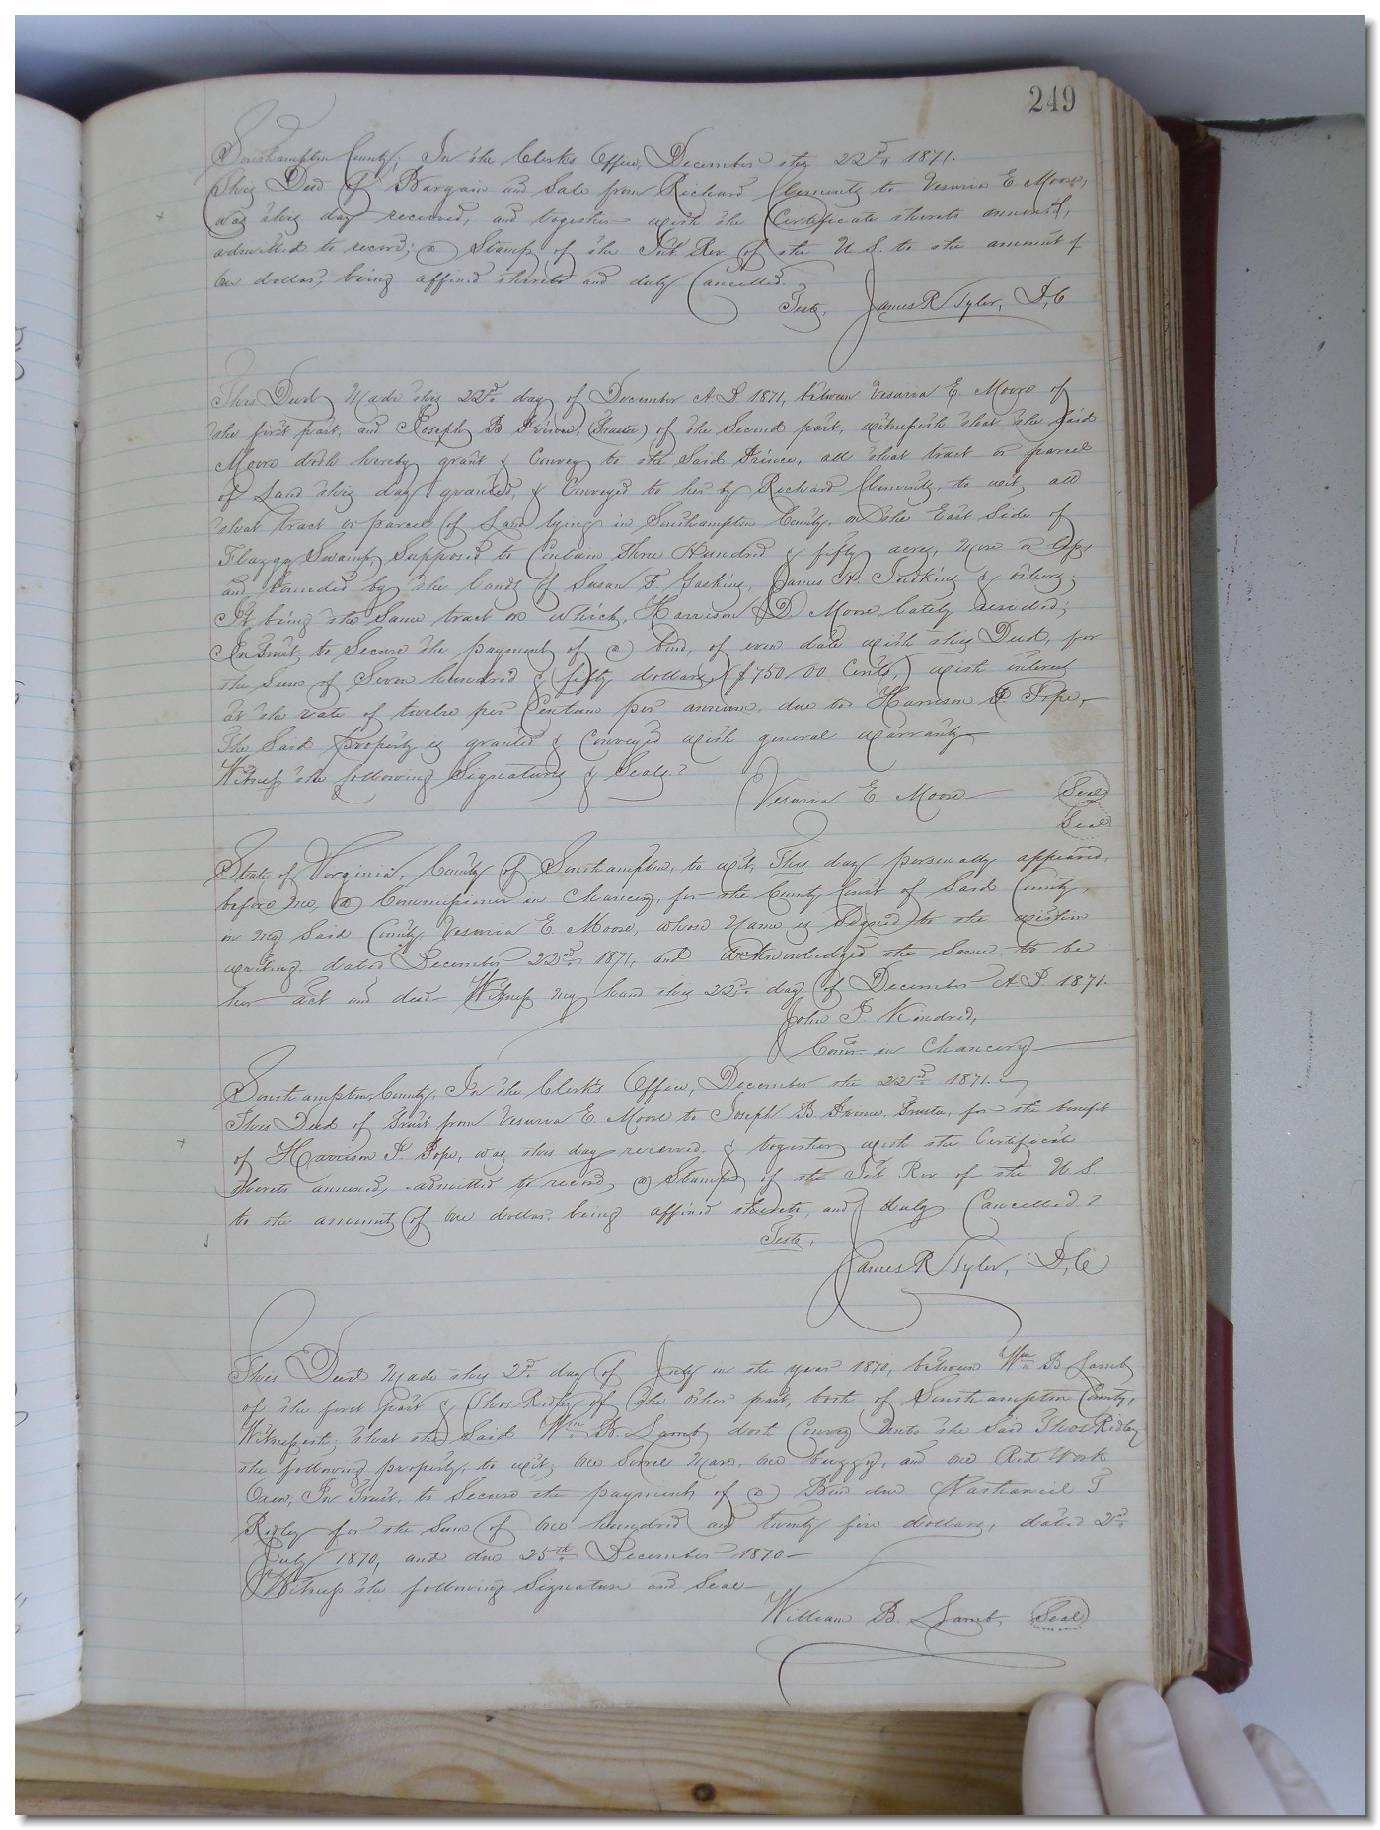 249
Southampton County; In the Clerk's Office, December the 22nd, 1871.
This Deed of Bargain and Sale from Richard Clements to Vesuvia E Moore,
was this day received, and together with the Certificate thereto annexed,
admitted to record; a Stamp of the Int. Rev. of the U.S. to the amount of
One dollar, being affixed thereto and duly Cancelled.
Teste, James R Tyler, D,C
This Deed, Made this 22nd day of December A D 1871, between Vesuvia E. Moore of
the first part, and Joseph B Prince, (Trustee) of the Second part, witnesseth that the Said
Moore doth hereby grant & Convey to the Said Prince, all that tract or parcel
of Land this day granted, & Conveyed to her by Richard Clements, to wit, all
that tract or parcel of Land lying in Southampton County, on the East Side of
Flaggy Swamp, Supposed to Contain Three Hundred & fifty acres, More or less,
and bounded by the lands of Susan F. Gosking, James H. & others;
It being the Same tract on which, Harrison D. Moore lately resided;
In Trust, to Secure the payment of a bond, of even date with this Deed, for
the Sum of Seven hundred & fifty dollars, ($750.00 Cents,) with interest
at the rate of twelve per Centum per annum, due to Harrison P Pope,
The Said property is granted & Conveyed with general warranty
Witness the following Signatures & Seals.
Vesuvia E Moore Seal
Seal
State of Virginia, County of Southampton, to wit, This day personally appeared,
before me, a Commissioner in Chancery, for the County Court of Said County,
in my Said County, Vesuvia E. Moore, whose Name is Signed to the within
writing, dated December 22nd 1871, and acknowledged the Same to be
her act and deed Witness my hand this 22nd day of December A D. 1871.
John J. Kindred,
Comr in Chancery
Southampton County, In the Clerk's Office, December the 22nd 1871.
This Deed of Trust from Vesuvia E Moore to Joseph B Prince, Trustee, for the benefit
of Harrison P. Pope, was this day received, & together with the Certificate
thereto annexed, admitted to record, a Stamp of the Int Rev of the U S
to the amount of One dollar, being affixed thereto, and duly Cancelled
Teste,
James R Tyler, D,C
This Deed made this 2nd day of July in the year 1870, between Wm B Lamb
of the first part & Thos Ridley of the other part, both of Southampton County,
Witnesseth; that the Said Wm B. Lamb doth Convey Unto the Said Thos Ridley
the following property, to wit; One Sorrel Mare, One buggy, and One Red Work
Oxen, In Trust, to Secure the payment of a Bond due Nathaniel T
Ridley for the Sum of One hundred and twenty five dollars, dated 2nd
July 1870, and due 25th December 1870
Witness the following Signature and Seal
William B. Lamb, Seal